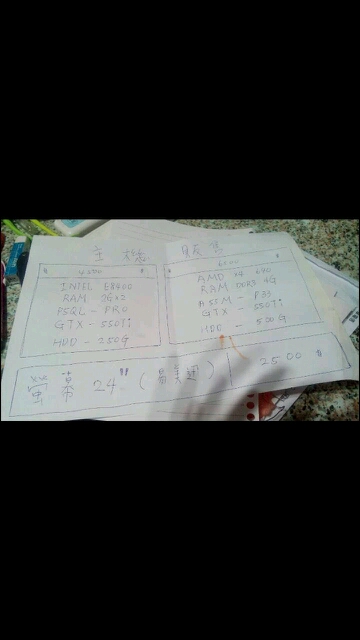 主機 販售
$ 4500 $
INTEL E8400
RAM 2G×2
P5QL - PRO
GTX - 550Ti
HDD - 250G
$ 6500 $
AMD X4 640
RAM DDR3 4G
GTX - 550Ti
HDD - 500G
螢幕 24" (易美遜) 2500 $